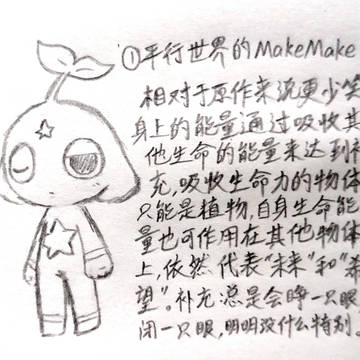 ①平行世界的MakeMake
相对于原作来说更少笑
身上的能量通过吸收其
他生命的能量来达到补
充,吸收生命力的物体
只能是植物,自身生命能
量也可作用在其他物体
上,依然代表“未来”和“希
望”。补充:总是会睁一只眼,
闭一只眼,明明没什么特别。